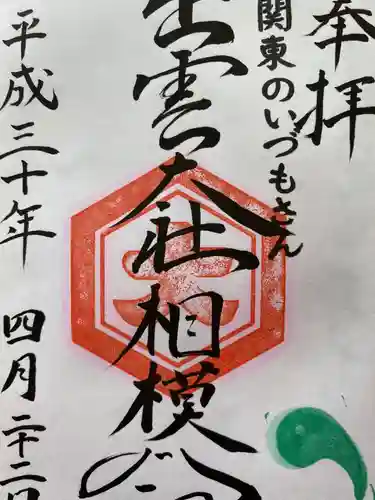 奉拝
関東のいづもさん
出雲大社相模分
平成三十年 四月二十二日